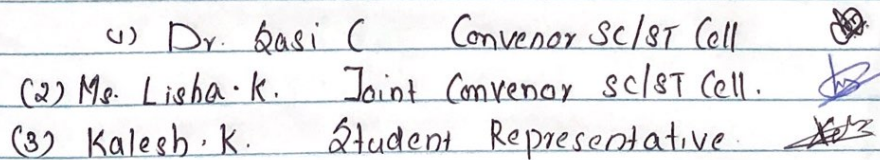 (1) Dr. Sasi C Convenor SC/ST Cell
(2) Ms. Lisha. K. Joint Convenor SC/ST Cell.
(3) Kalesh. K. Student Representative.